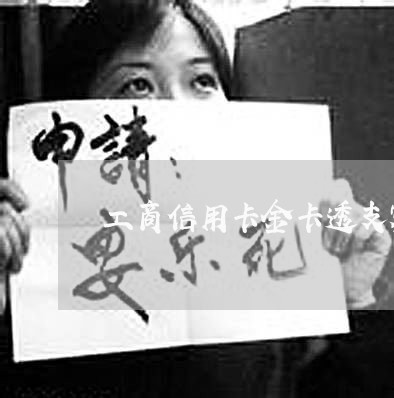 申請：
工商信用卡金卡透支
要乐死